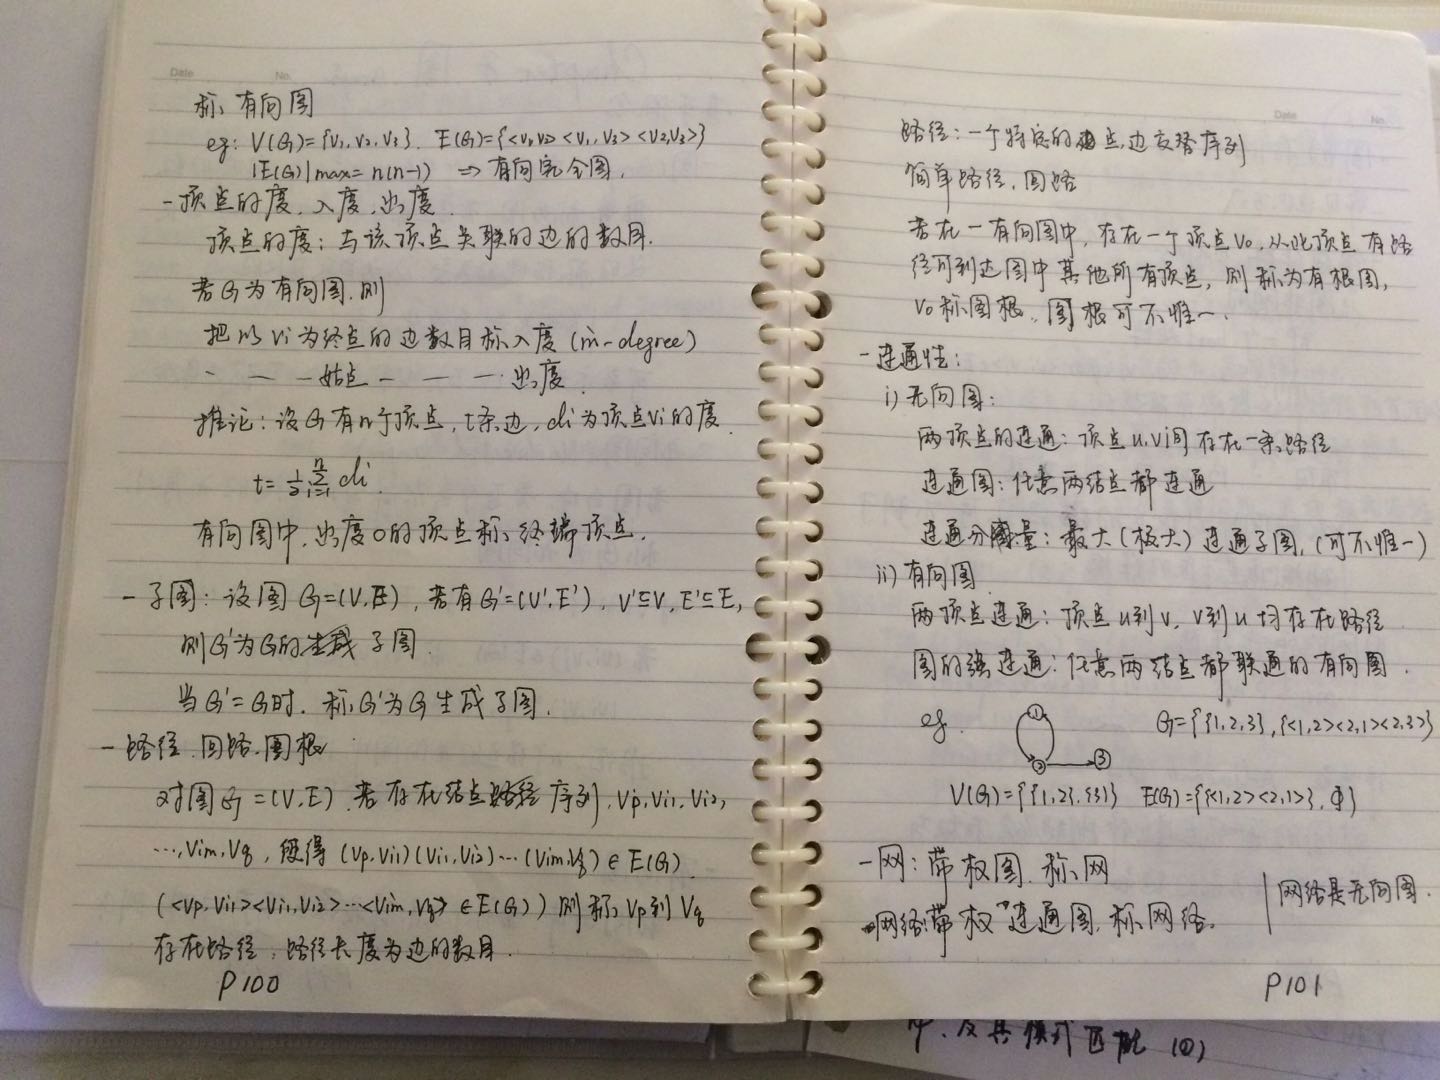 Date No.
称有向图
eg: V(G)={V1,V2,V3}. E(G)={<V1,V2> <V1,V3> <V2,V3>}
|E(G)|max= n(n-1) ⇒ 有向完全图.
- 顶点的度, 入度, 出度.
顶点的度: 与该顶点关联的边的数目.
若G为有向图, 则
把以Vi为终点的边数目称入度 (in-degree)
- — — 始点 — — — 出度.
推论: 设G有n个顶点, t条边, di为顶点Vi的度.
t= 1/2 Σ(i=1→n) di.
有向图中, 出度0的顶点称终端顶点.
- 子图: 设图 G=(V,E), 若有G'=(V',E'), V'⊆V, E'⊆E,
则G'为G的子图.
当G'=G时, 称G'为G生成子图.
- 路径, 回路, 图根
对图G=(V,E), 若存在结点序列, Vp, Vi1, Vi2,
…, Vim, Vq, 使得 (Vp,Vi1)(Vi1,Vi2)…(Vim,Vq) ∈ E(G).
(<Vp,Vi1><Vi1,Vi2>…<Vim,Vq> ∈E(G)) 则称Vp到Vq
存在路径, 路径长度为边的数目.
P100
Date No.
路径: 一个特定的点,边交替序列
简单路径, 回路
若在一有向图中, 存在一个顶点V0, 从此顶点有路
径可到达图中其他所有顶点, 则称为有根图,
V0称图根, 图根可不惟一.
- 连通性:
i) 无向图:
两顶点的连通: 顶点u,v间存在一条路径
连通图: 任意两结点都连通
连通分量: 最大(极大)连通子图, (可不惟一)
ii) 有向图
两顶点连通: 顶点u到v, v到u均存在路径
图的强连通: 任意两结点都联通的有向图.
eg. ① ② ③ G={{1,2,3},{<1,2><2,1><2,3>}
V(G)={{1,2},{3}} E(G)={{<1,2><2,1>}, Φ}
- 网: 带权图, 称网
网络: 带权"连通图, 称网络.
网络是无向图.
P101
及其模式匹配 (2)